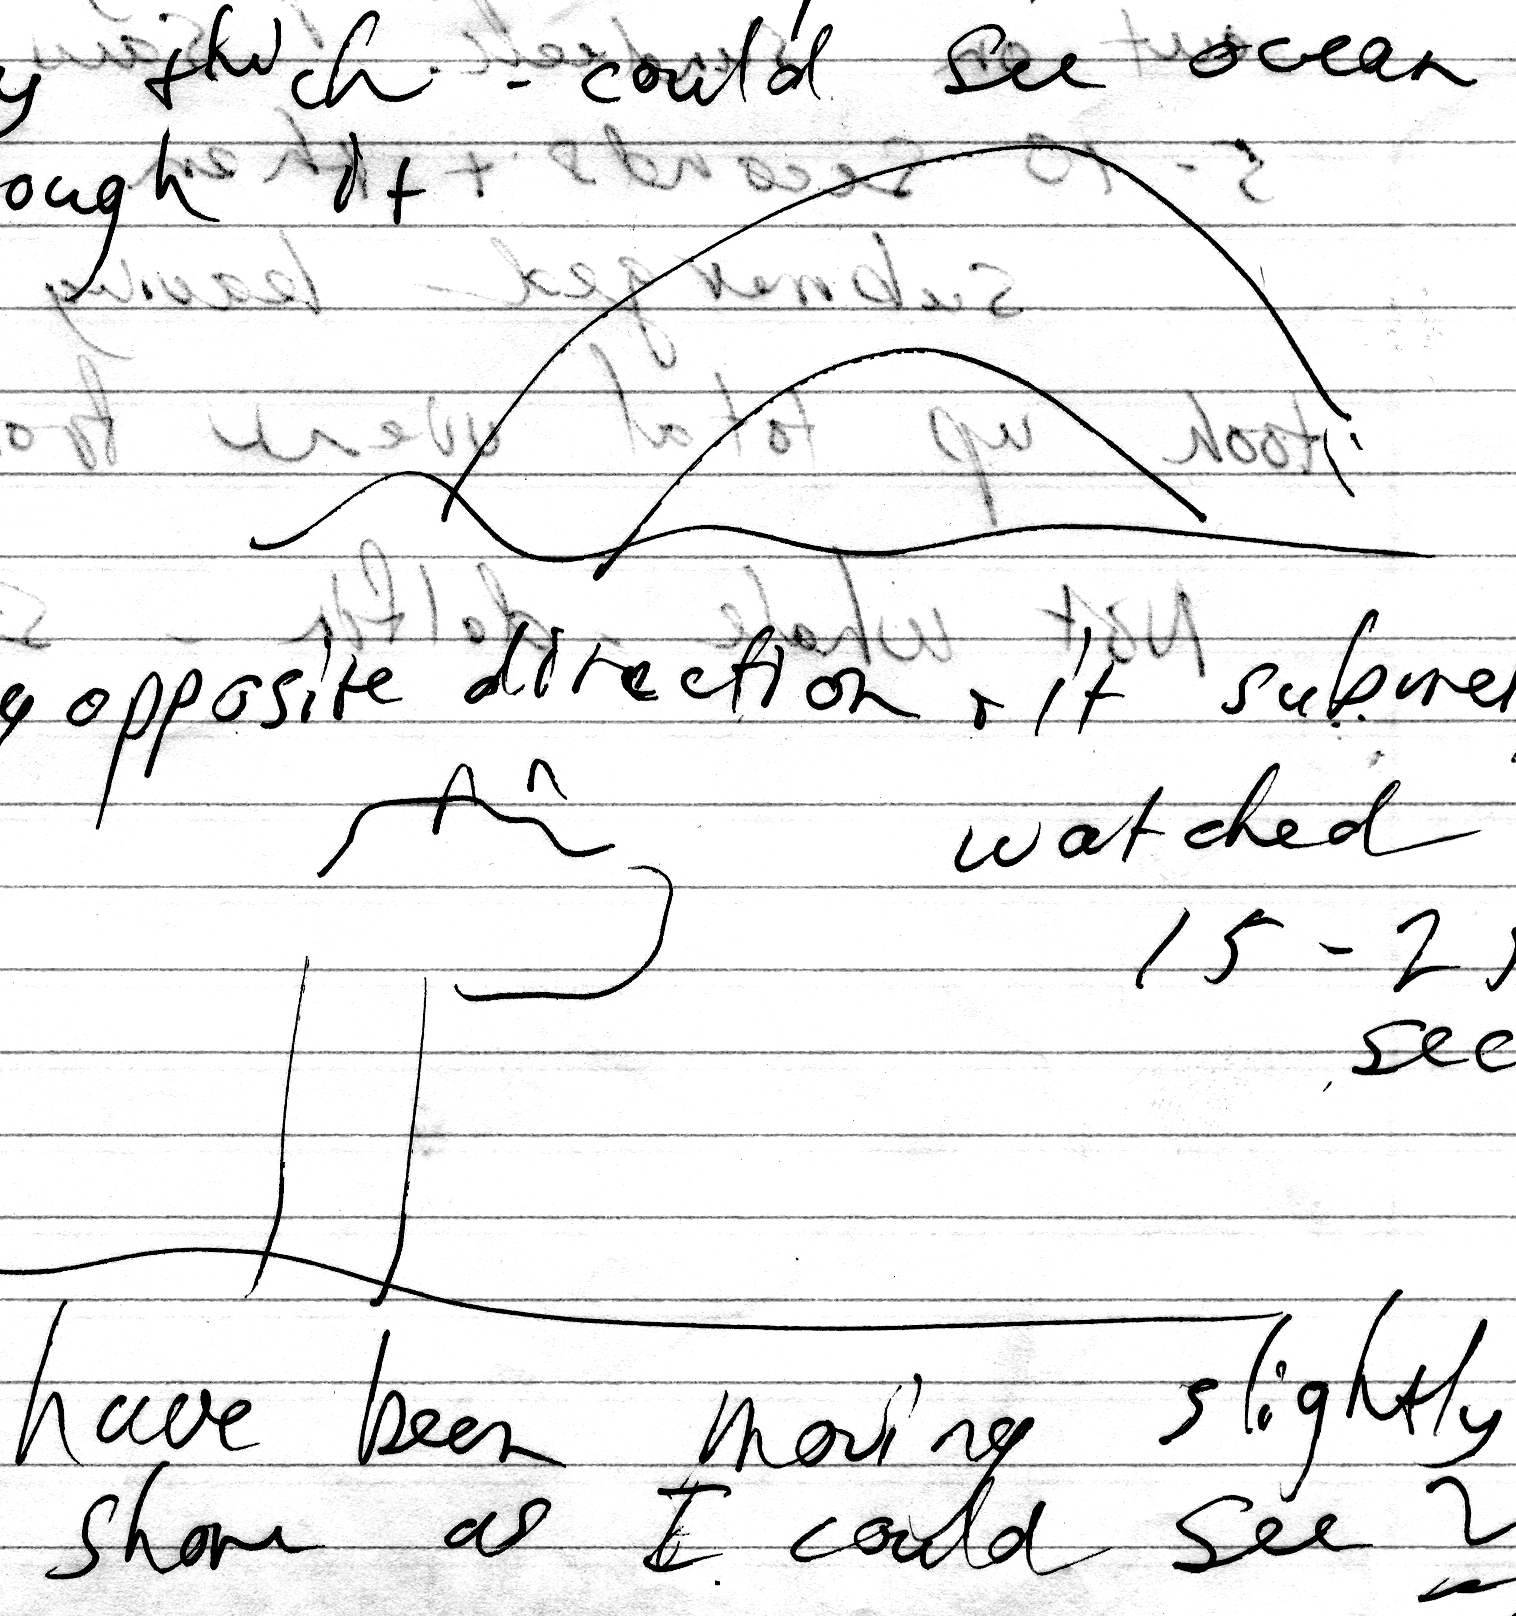 y thick - could see ocean
ough it
opposite direction + it submer
watched
15-2
sec
have been moving slightly
shore as I could see 2